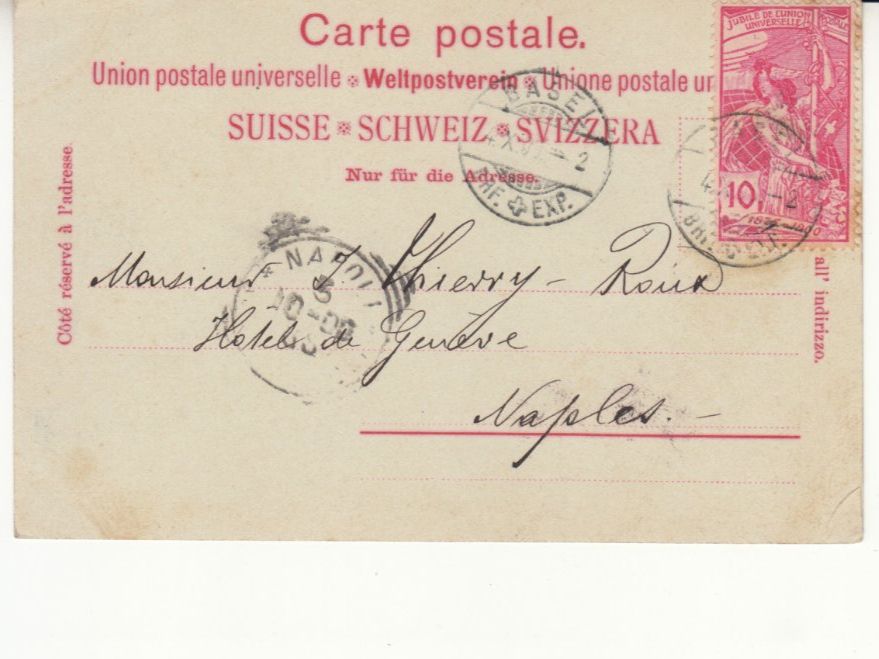 Carte postale.
Union postale universelle ※ Weltpostverein ※ Unione postale un
SUISSE ※ SCHWEIZ ※ SVIZZERA
Nur für die Adresse.
Côté réservé à l'adresse.
all' indirizzo.
JUBILÉ DE L'UNION
UNIVERSELLE
10
BASEL
2
BHF. EXP.
2
NAPOLI
Monsieur J. Thierry-Roux
Hotel de Genève
Naples.-